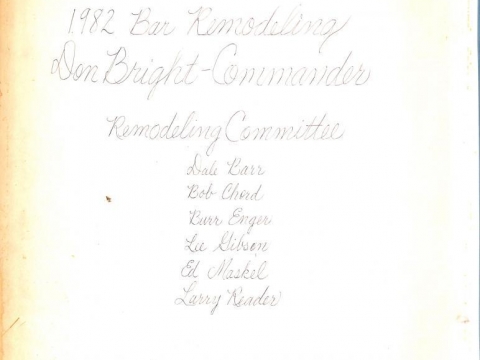 1982 Bar Remodeling
Don Bright-Commander
Remodeling Committee
Dale Barr
Bob Chord
Burr Enger
Lee Gibson
Ed Maskel
Larry Reader